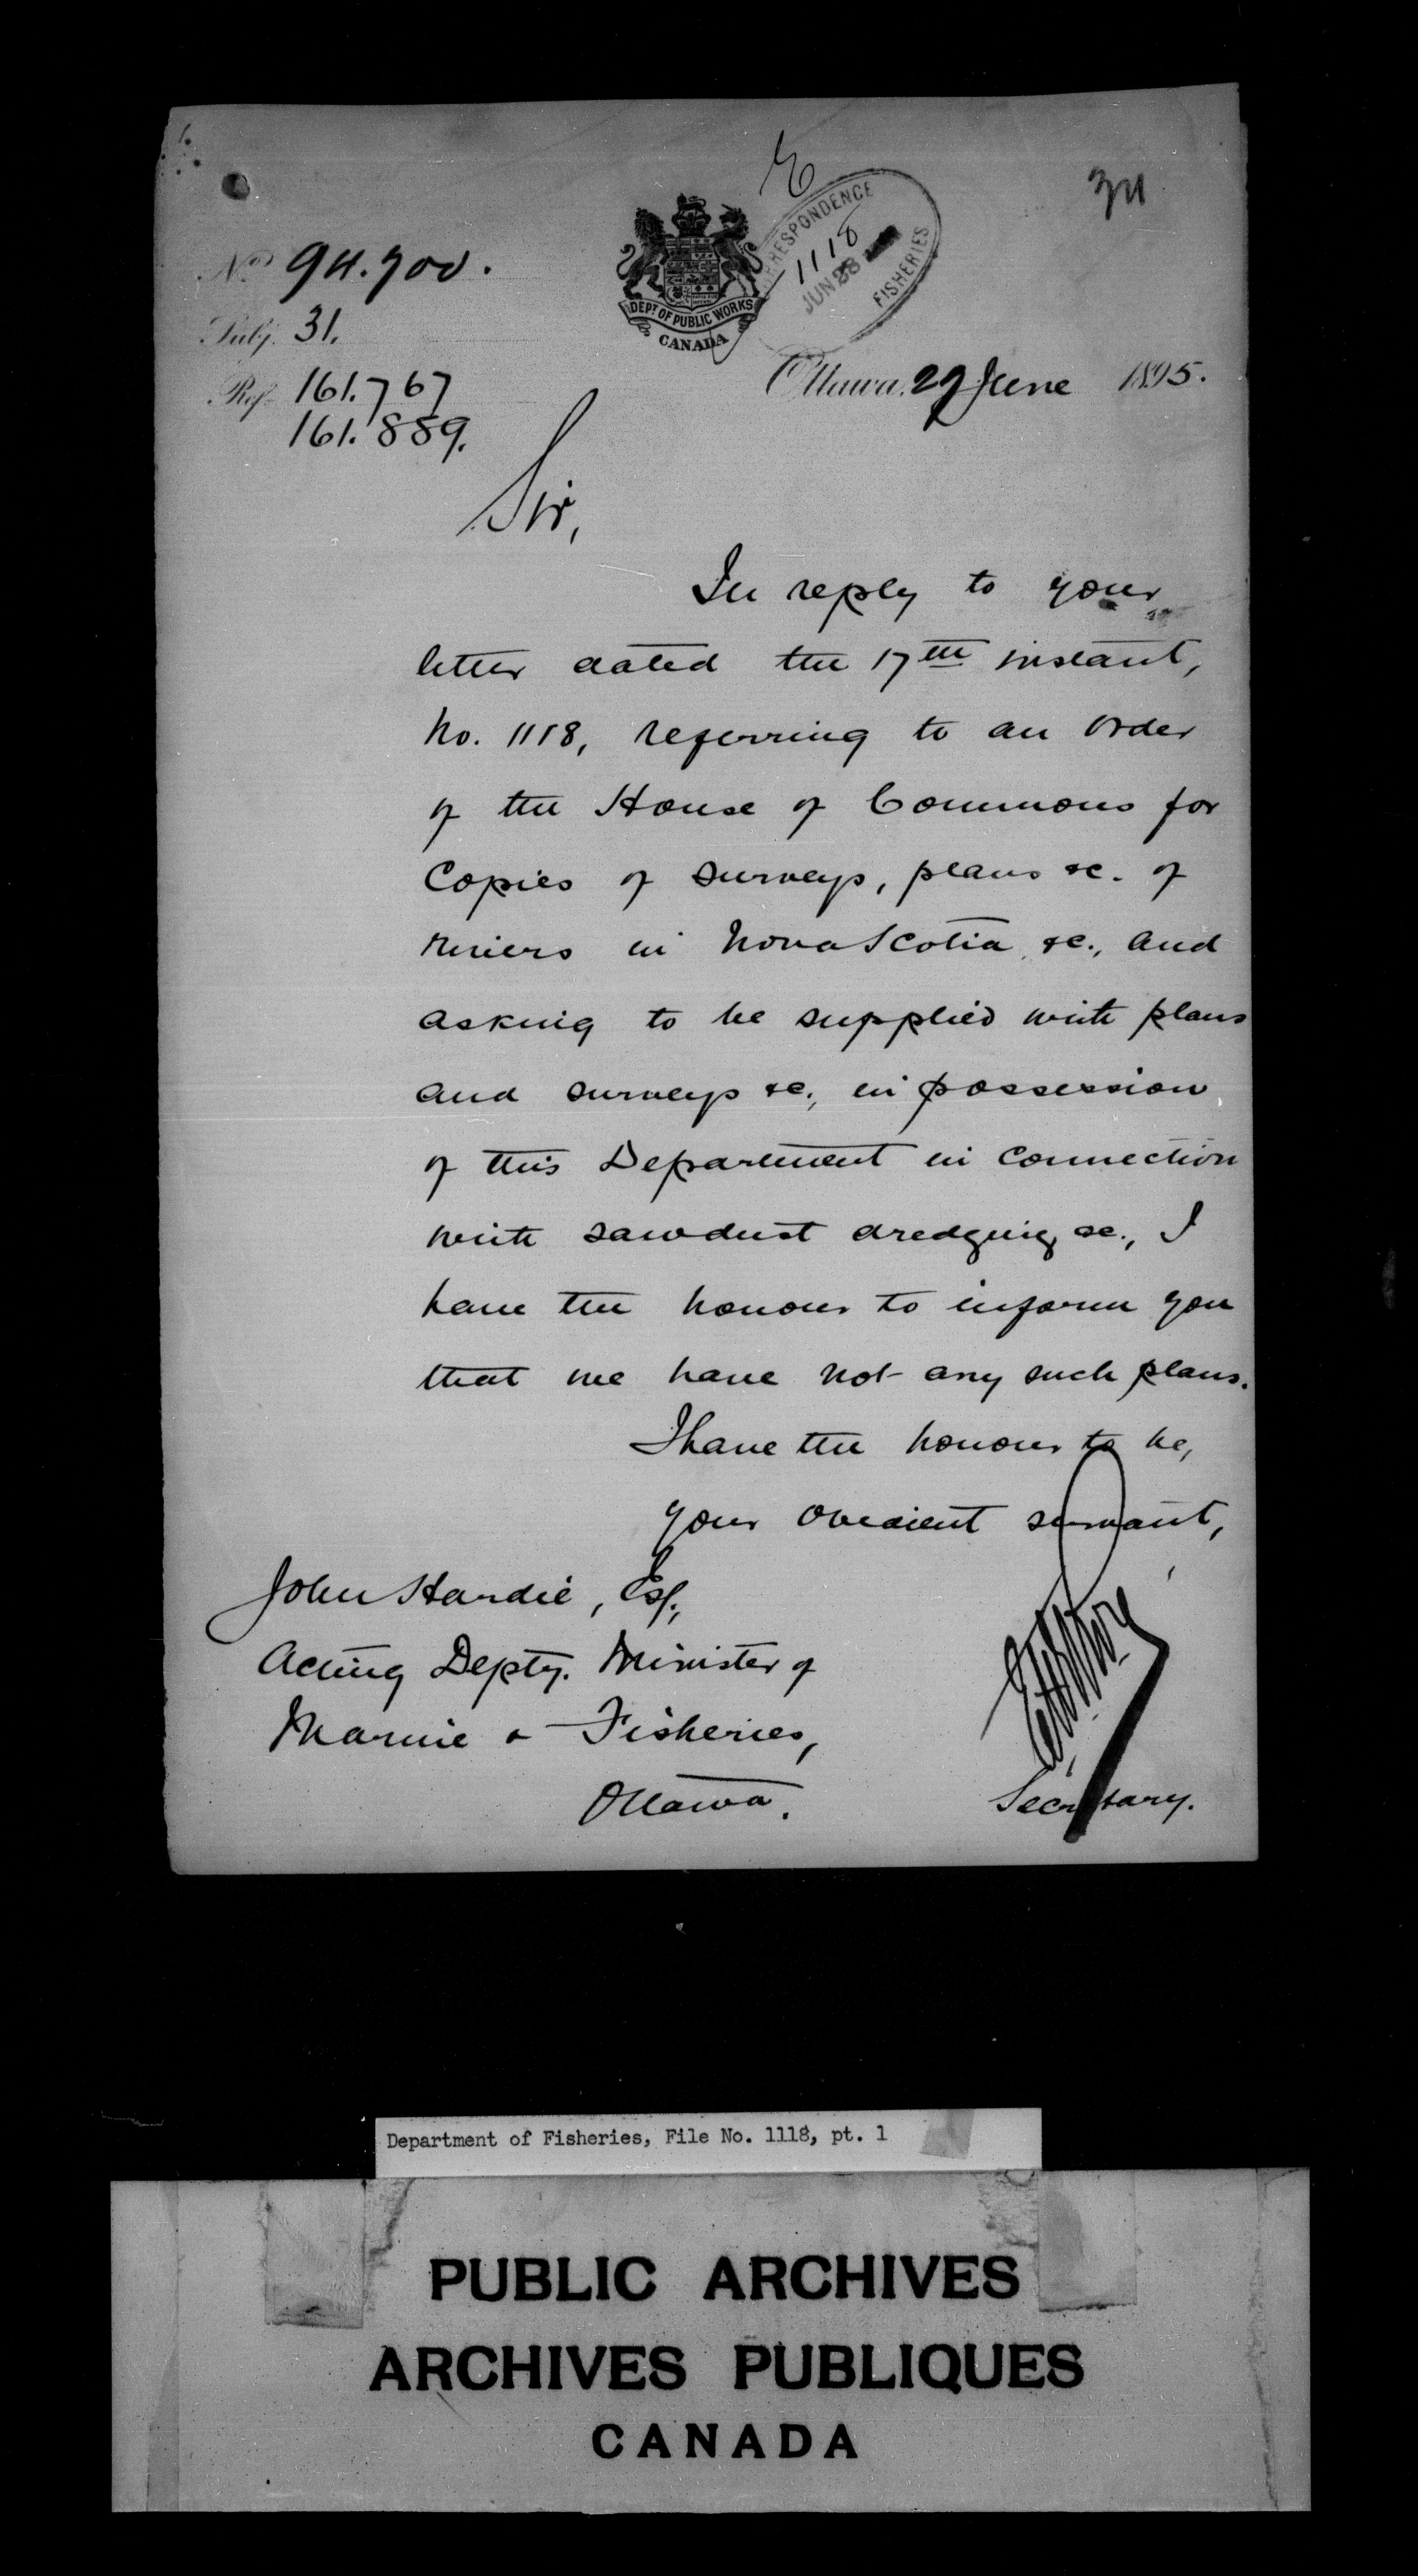 E
34
No. 94.700.
DEPT. OF PUBLIC WORKS
CANADA
CORRESPONDENCE
1118
JUN 28
FISHERIES
Subj. 31.
Ref. 161.767
161.889.
Ottawa, 27 June 1895.
Sir,
In reply to your
letter dated the 17th instant,
No. 1118, referring to an order
of the House of Commons for
Copies of surveys, plans &c. of
rivers in Nova Scotia &c., and
asking to be supplied with plans
and surveys &c., in possession
of this Department in connection
with sawdust dredging &c., I
have the honour to inform you
that we have not any such plans.
I have the honour to be,
your obedient servant,
John Hardie, Esq.,
Acting Depty. Minister of
Marine & Fisheries,
Ottawa.
Secretary.
Department of Fisheries, File No. 1118, pt. 1
PUBLIC ARCHIVES
ARCHIVES PUBLIQUES
CANADA